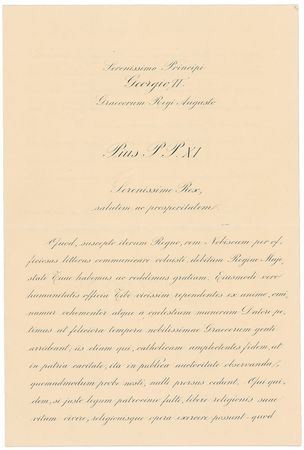 Serenissimo Principi
Georgio II
Graecorum Regi Augusto
Pius P.P. XI
Serenissime Rex,
salutem ac prosperitatem.
Quod, suscepto iterum Regno, rem Nobiscum per of-
ficiosas litteras communicare voluisti, debitam Regiae Maje-
stati Tuae habemus ac reddimus gratiam. Eiusmodi vero
humanitatis officia Tibi vicissim rependentes ex animo, om-
nium vehementer atque a caelestium munerum Datore pe-
timus ut feliciora tempora nobilissimae Graecorum genti
arrideant: iis etiam qui, catholicam amplectentes fidem, ut
in patria caritate, ita in publica auctoritate observanda,
quemadmodum probe nosti, nulli prorsus cedunt. Qui qui-
dem, si justo legum patrocinio fulti, libere religionis suae
vitam vivere, religionisque opera exercere possunt quod